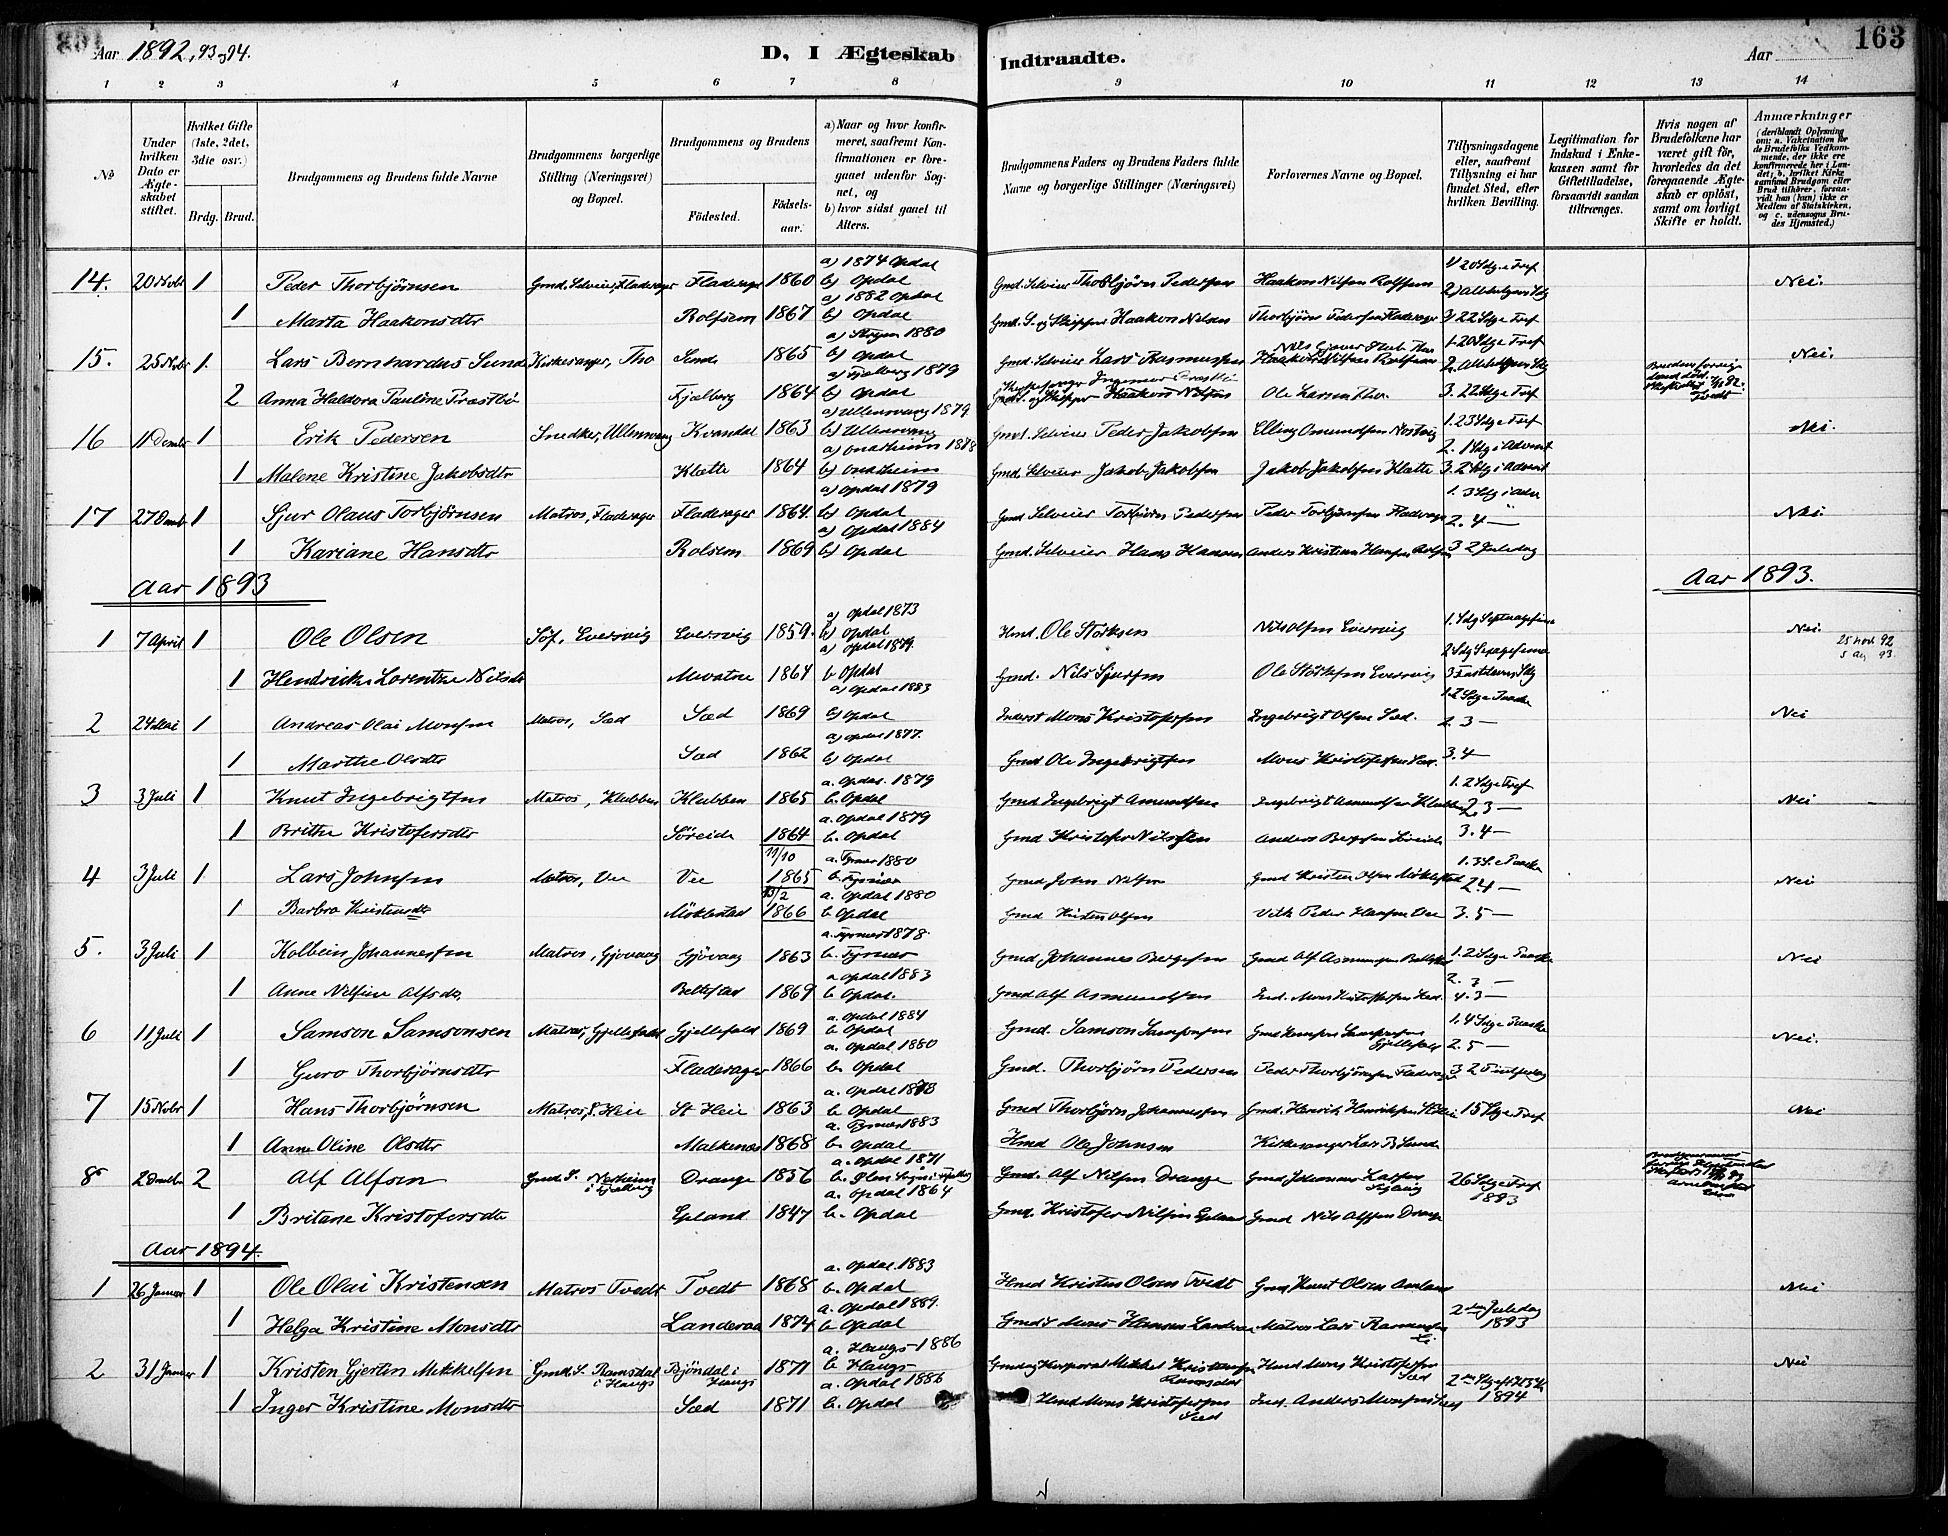 Aar 1892, 93 og 94.
D, I Ægteskab Indtraadte.
Aar 163
1 2 3 4 5 6 7 8 9 10 11 12 13 14
No
Under hvilken Dato er Ægteskabet stiftet.
Hvilket Gifte (1ste, 2det, 3die osv.)
Brdg. Brud.
Brudgommens og Brudens fulde Navne
Brudgommens borgerlige Stilling (Næringsvei) og Bopæl.
Brudgommens og Brudens
Fødested.
Fødselsaar.
a) Naar og hvor konfirmeret, saafremt Konfirmationen er foregaaet udenfor Sognet, og
b) hvor sidst gaaet til Alters.
Brudgommens Faders og Brudens Faders fulde Navne og borgerlige Stillinger (Næringsvei)
Forlovernes Navne og Bopæl.
Tillysningsdagene eller, saafremt Tillysning ei har fundet Sted, efter hvilken Bevilling.
Legitimation for Indskud i Enkekassen samt for Giftetilladelse, forsaavidt saadan tiltrænges.
Hvis nogen af Brudefolkene har været gift før, hvorledes da det foregaaende Ægteskab er opløst, samt om lovligt Skifte er holdt.
Anmærkninger (deriblandt Oplysning om: a. Vakcination for de Brudefolks Vedkommende, der ikke ere konfirmerede her i Landet; b. hvilket Kirkesamfund Brudgom eller Brud tilhører, forsaavidt han (hun) ikke er Medlem af Statskirken, og c. udensogns Brudes Hjemsted.)
14. 20 Novbr 1 Peder Thorbjørnsen Gmd. Selveier, Fladerager Fladerager 1860 a) 1874 Opdal b) Opdal Gmd. Selveier Thorbjørn Pedersen Haakon Nilsen Rolfsem 1) 20 Sdg e Tref 2) Allehelgens Sdg Nei.
1 Marta Haakonsdtr Rolfsem 1867 a) 1882 Opdal b) Opdal Gmd. S. og Skipper Haakon Nilsen Thorbjørn Pedersen Fladerager 3) 22 Sdg e Tref
15. 25 Novbr 1. Lars Bernhardus Sunde Kirkesanger, Tho Sunde 1865 a) Stryn 1880 b) Opdal Gmd. Selveier Lars Rasmussen Haakon Nilsen Rolfsem 1. 20 Sdg e Tref 2. Allehelgens Sdg Nei.
2 Anna Haldora Pauline Præstbø Fjelberg 1864 a) Fjelberg 1879 b) Opdal Gmd. S. og Skipper Haakon Nilsen Ole Larsen 3. 22 Sdg e Tref
16 11 Decmbr 1 Erik Pedersen Snedker, Ullensvang Kvandal 1863 a) Ullensvang 1879 b) Ullensvang Gmd. Selveier Peder Jakobsen Elling Omundsen Nostvig 1. 23 Sdg e Tref 2. 1 Sdg i Advent Nei.
1 Malene Kristine Jakobsdtr Klette 1864 a) Onarheim 1878 b) Onarheim Gmd. Selveier Jakob Jakobsen Jakob Jakobsen Klette 3. 2 Sdg i Advent
17 27 Decmbr 1 Sjur Olaus Torbjørnsen Matros, Fladerager Fladerager 1864. a) Opdal 1879 b) Opdal Gmd Selveier Torbjørn Pedersen Peder Torbjørnsen Fladerager 1. 3 Sdg i Adv 2. 4 — Nei.
1 Kariane Hansdtr Rolsem 1869 a) Opdal 1884 b) Opdal Gmd. Selveier Hans Hansen Anders Kristian Hansen 3 2 Juledag
Aar 1893 Aar 1893.
1 7 April 1 Ole Olsen Søf, Eversvig Eversvig 1859. a) Opdal 1873 b) Opdal Hmd. Ole Størksen Nils Olsen Eversvig 1. Sdg Septuagesima Nei. 25 novb 92 5 aug 93.
1 Hendrikke Lorentine Nilsdtr Mevatne 1864 a) Opdal 1879. b. Opdal Gmd. Nils Sjursen Ole Størksen Eversvig 2 Sdg Sexagesima 3 Fastelavns Sdg
2 24 Mai 1 Andreas Olai Monsen Matros, Sæd Sæd 1869 a) Opdal 1883 b) Opdal Inderst Mons Kristofersen Ingebrigt Olsen Sæd. 1. 2 Sdg e Paaske 2. 3 — Nei
1 Marthe Olsdtr Sæd 1862 a) Opdal 1877. b) Opdal Gmd Ole Ingebrigtsen Mons Kristofersen Sæd. 3. 4 —
3 3 Juli 1 Knut Ingebrigtsen Matros, Klubben Klubben 1865 a. Opdal. 1879 b. Opdal Gmd Ingebrigt Amundsen Ingebrigt Amundsen Klubben 1. 2 Sdg e Tref 2. 3 — Nei
1 Brithe Kristofersdtr Søreide 1864 a. Opdal 1879 b. Opdal Gmd Kristofer Nilssen Anders Bergesen Søreide 3. 4 —
4 3 Juli 1 Lars Johnsen Matros, Vee Vee 11/10 1865 a. Tysnes 1880 b. Tysnes Gmd John Nilsen Gmd Kristen Olsen Møklestad 1. 3 S. e Paaske 2. 4 — Nei
1 Barbro Kristensdtr Møklestad 13/2 1866 a. Opdal 1880 b Opdal Gmd Kristen Olsen Peder Hansen Vee 3. 5 —
5. 3 Juli 1 Kolbein Johannessen Matros, Gjøvaag Gjøvaag 1863 a. Tysnes 1878 b. Tysnes Gmd Johannes Bergesen Gmd Alf Asmundsen 1. 2 Sdg e Paaske 2. 3 — Nei
1 Anne Nilsine Alfsdtr Beltestad 1869 a Opdal 1883 b Opdal. Gmd Alf Asmundsen Ind. Mons Kristofersen Sæd. 4. 3 —
6 11 Juli 1 Samson Samsonsen Matros, Gjellefald Gjellefald 1869 a. Opdal 1884 b. Opdal Gmd. Samson Samsonsen Gmd Samson Samsonsen Gjellefald 1. 4 Sdg e Paaske 2. 5 — Nei.
1 Guro Thorbjørnsdtr Fladerager 1866 a. Opdal 1880 b. Opdal Gmd. Thorbjørn Pedersen Peder Thorbjørnsen Fladerager 3 2 Pintsedag
7 15 Novbr 1 Hans Thorbjørnsen Matros, S. Heie St Heie 1863 a. Opdal 1878 b Opdal Gmd Thorbjørn Johannessen Gmd. Henrik Henriksen 15 Sdg e Tref Nei
1 Anne Oline Olsdtr Malkenæs 1868 a. Tysnes 1883 b. Opdal Hmd Ole Johnsen Kirkesanger Lars B. Sunde
8 2 Decbr 2 Alf Alfsen Gmd S. Nerheim i Fjelberg Drange 1836 a. Opdal 1871 Gmd. Alf Nilsen Drange Gmd Johannes Larsen 26 Sdg e Tref 1893
1 Britane Kristofersdtr Epland 1847 a. Opdal 1864 b. Opdal Gmd. Kristofer Nilsen Epland Gmd Nils Alfsen Drange
Aar 1894.
1 26 Januar 1 Ole Olai Kristensen Matros Tvedt Tvedt 1868 a. Opdal 1883 b. Opdal Hmd Kristen Olsen Tvedt Gmd Knut Olsen Nei
1 Helga Kristine Monsdtr Landeraa 1874 a. Opdal 1889. b. Opdal Gmd S Mons Hansen Landeraa Matros Lars Rasmussen 2den Juledag 1893
2 31 Januar 1 Kristen Gjertin Mikkelsen Gmd. S. Ramsdal i Haugs Bjöndal i Haugs 1871 a. Haugs 1886 b Haugs Gmd og Korporal Mikkel Kristensen Ramsdal Hmd Mons Kristofersen Sæd Nei
1 Inger Kristine Monsdtr Sæd 1871 a. Opdal 1886 b. Opdal Hmd Mons Kristofersen Sæd Ind. Anders Monsen 1894